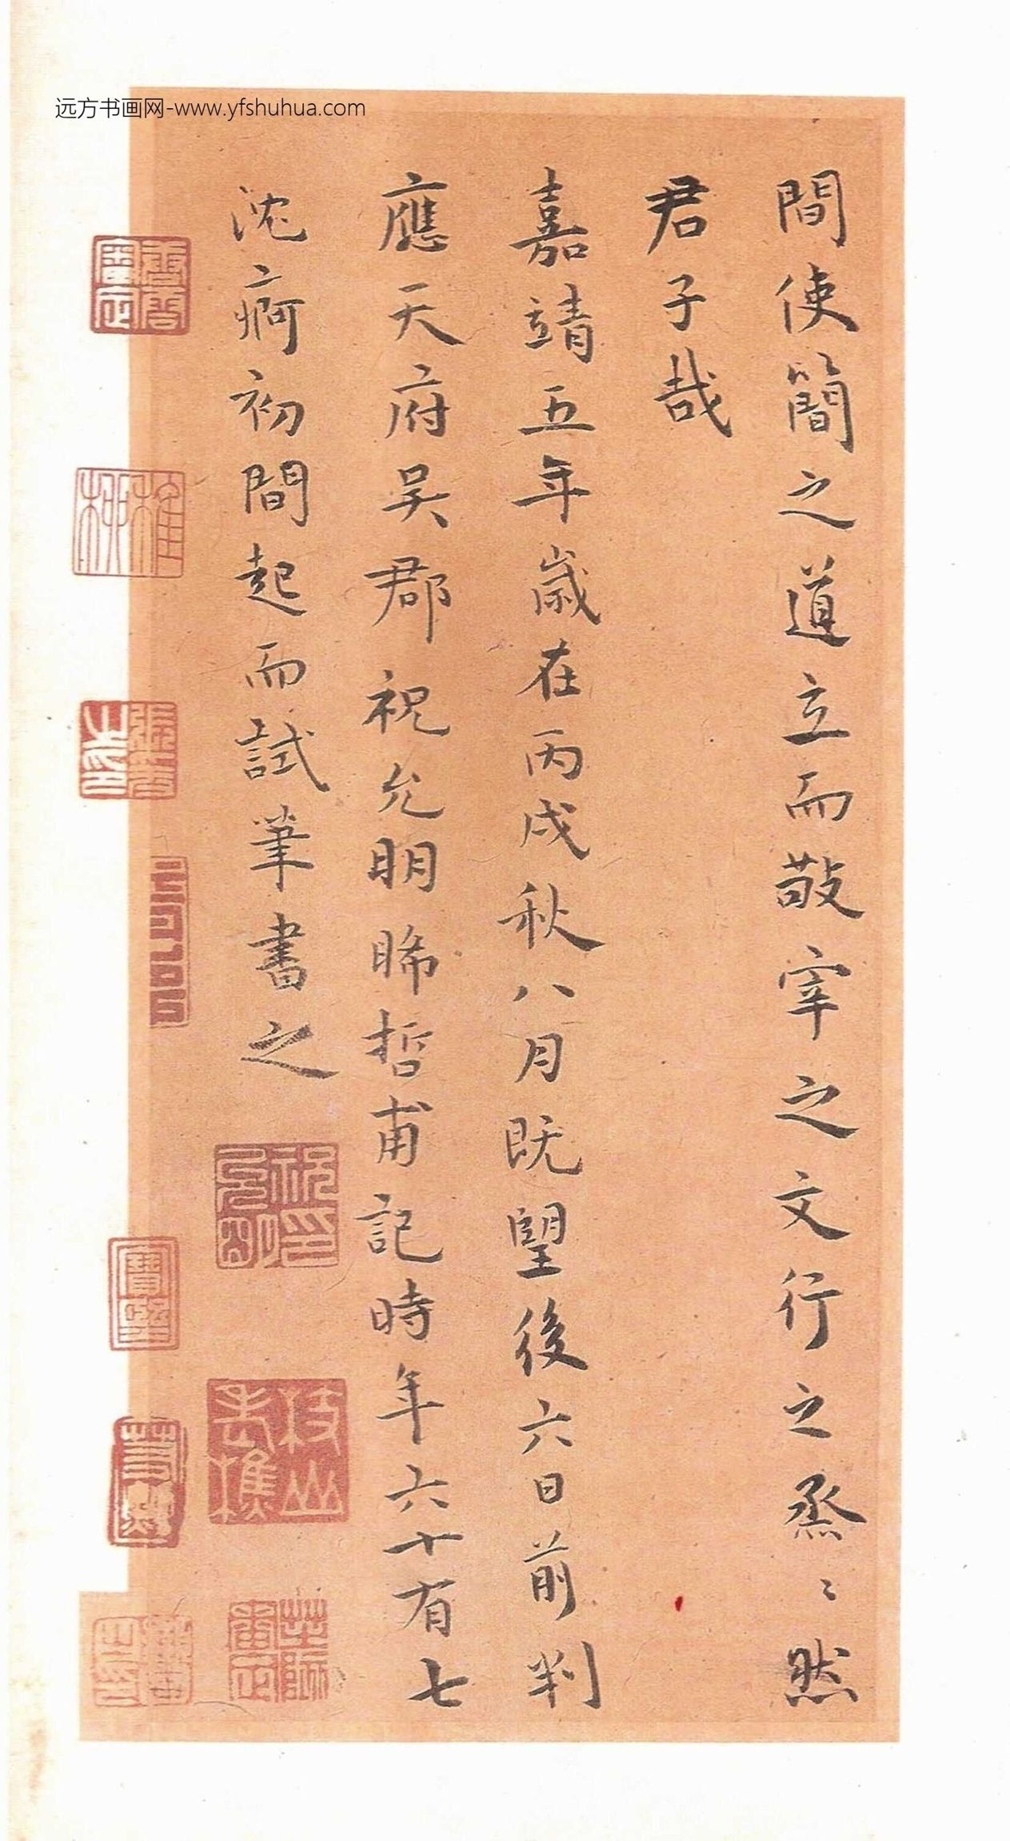 远方书画网-www.yfshuhua.com
間使簡之道立而敬宰之文行之烝〻然
君子哉
嘉靖五年歲在丙戌秋八月既望後六日前判
應天府吳郡祝允明晞哲甫記時年六十有七
沈痾初間起而試筆書之
祝印允明
枝山老樵